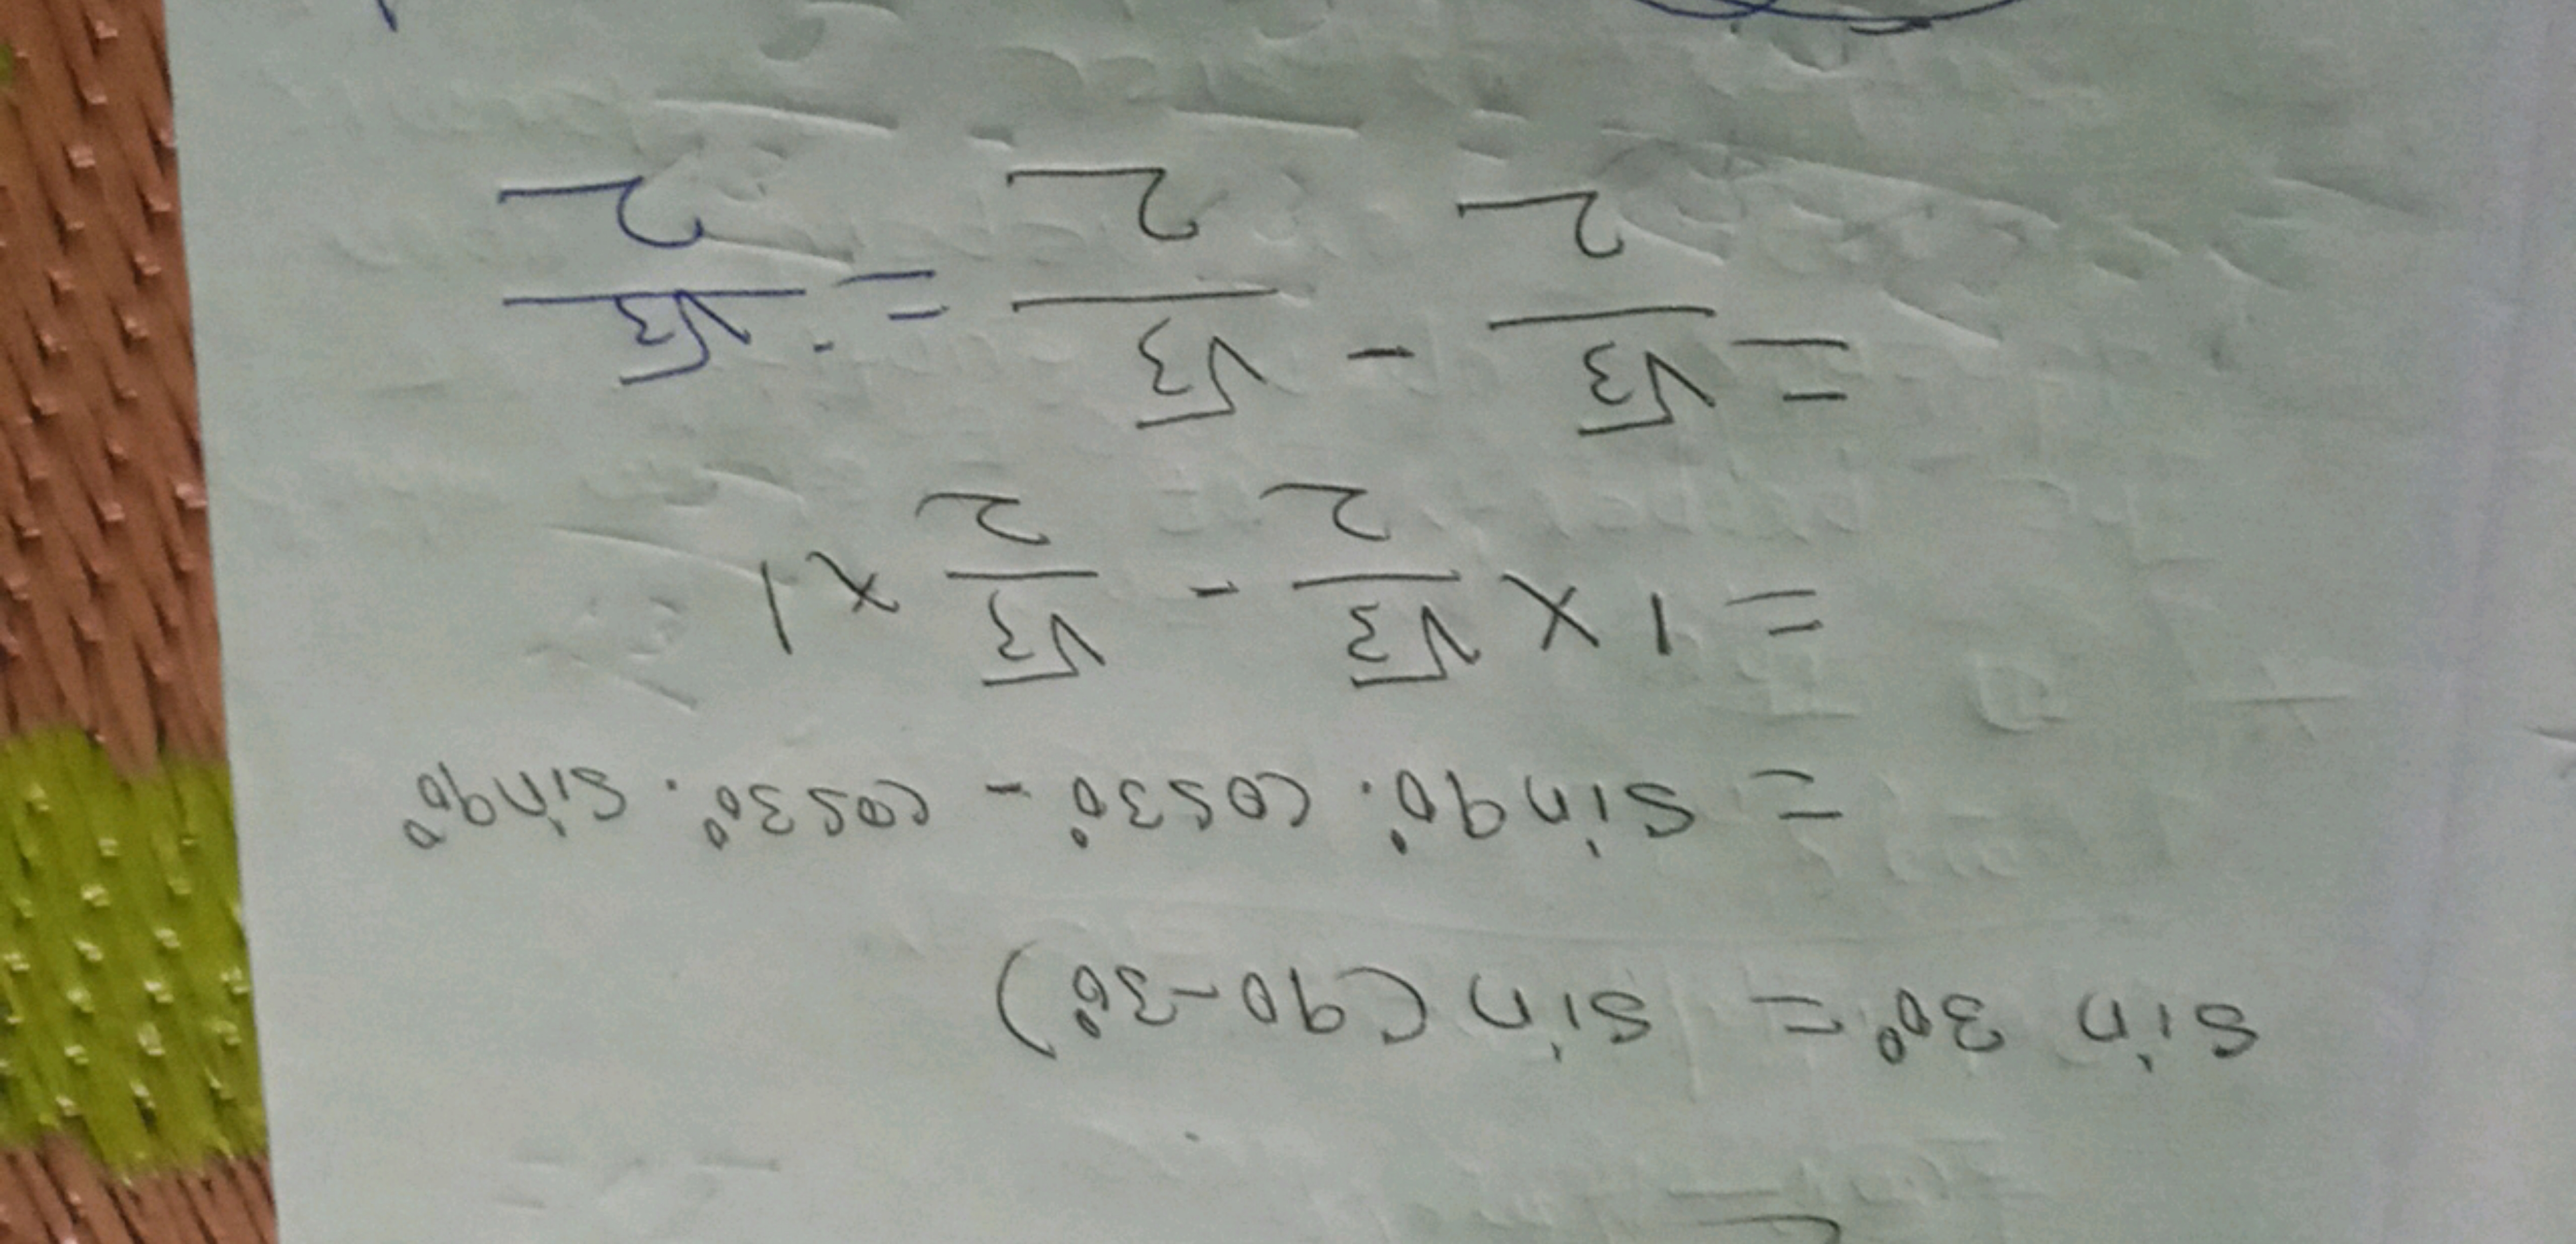 sin 30° = sin (90-30°)
= sin90°. cos30° - cos30°. sin90°
= 1 × √3/2 - √3/2 × 1
= √3/2 - √3/2 = √3/2